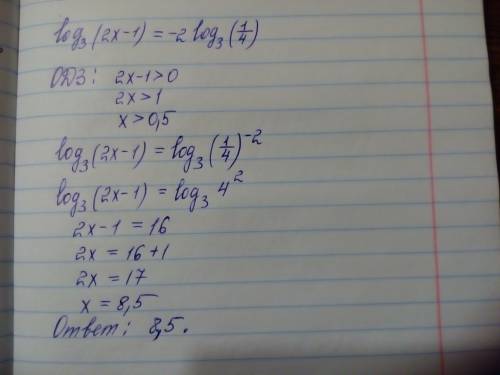 log₃(2x-1) = -2 log₃(1/4)
ОДЗ: 2x-1>0
2x>1
x>0,5
log₃(2x-1) = log₃(1/4)⁻²
log₃(2x-1) = log₃ 4²
2x-1 = 16
2x = 16+1
2x = 17
x = 8,5
Ответ: 8,5.